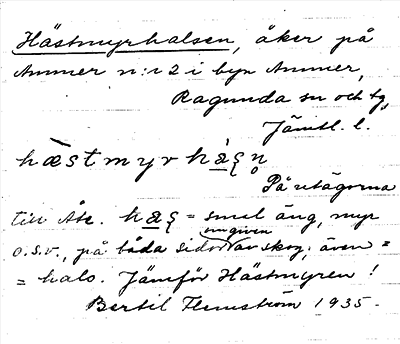 Hästmyrhalsen, åker på
Ammer n:r 2 i byn Ammer,
Ragunda sn och tg,
Jämtl. l.
hæ̀stmyrhàʂn̥
På utägorna
till Åk. haʂ = smal äng, myr
o.s.v., på båda sidor omgiven av skog; även =
= hals. Jämför Hästmyren!
Bertil Flemström 1935.